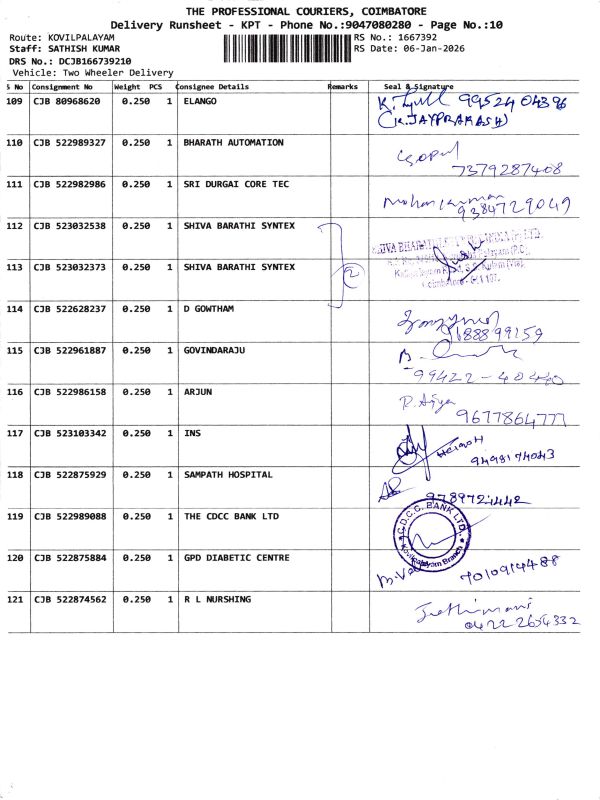 THE PROFESSIONAL COURIERS, COIMBATORE
Delivery Runsheet - KPT - Phone No.:9047080280 - Page No.:10
Route: KOVILPALAYAM RS No.: 1667392
Staff: SATHISH KUMAR RS Date: 06-Jan-2026
DRS No.: DCJB166739210
Vehicle: Two Wheeler Delivery
S No Consignment No Weight PCS Consignee Details Remarks Seal & Signature
109 CJB 80968620 0.250 1 ELANGO 9952404396
(K.JAYPRAKASH)
110 CJB 522989327 0.250 1 BHARATH AUTOMATION Gopal
7379287408
111 CJB 522982986 0.250 1 SRI DURGAI CORE TEC Mohankumar
9384729049
112 CJB 523032538 0.250 1 SHIVA BARATHI SYNTEX
113 CJB 523032373 0.250 1 SHIVA BARATHI SYNTEX 2
114 CJB 522628237 0.250 1 D GOWTHAM
115 CJB 522961887 0.250 1 GOVINDARAJU
99422-40440
116 CJB 522986158 0.250 1 ARJUN
9677864777
117 CJB 523103342 0.250 1 INS
9498174043
118 CJB 522875929 0.250 1 SAMPATH HOSPITAL
9789724442
119 CJB 522989088 0.250 1 THE CDCC BANK LTD C.D.C.C. BANK LTD. Kovilpalayam Branch
120 CJB 522875884 0.250 1 GPD DIABETIC CENTRE
7010914488
121 CJB 522874562 0.250 1 R L NURSHING
0422 2654332